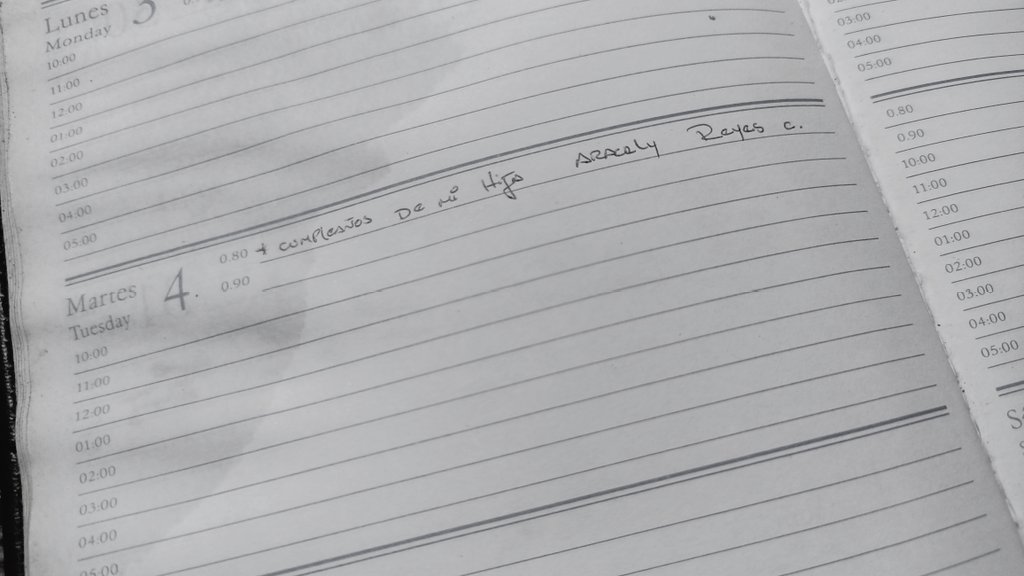 Lunes 3
Monday
10:00
11:00
12:00
01:00
02:00
03:00
04:00
05:00
Martes 4
Tuesday
0.80 + CUMPLEAÑOS DE MI Hija ARACELY Reyes C.
0.90
10:00
11:00
12:00
01:00
02:00
03:00
04:00
05:00
03:00
04:00
05:00
0.80
0.90
10:00
11:00
12:00
01:00
02:00
03:00
04:00
05:00